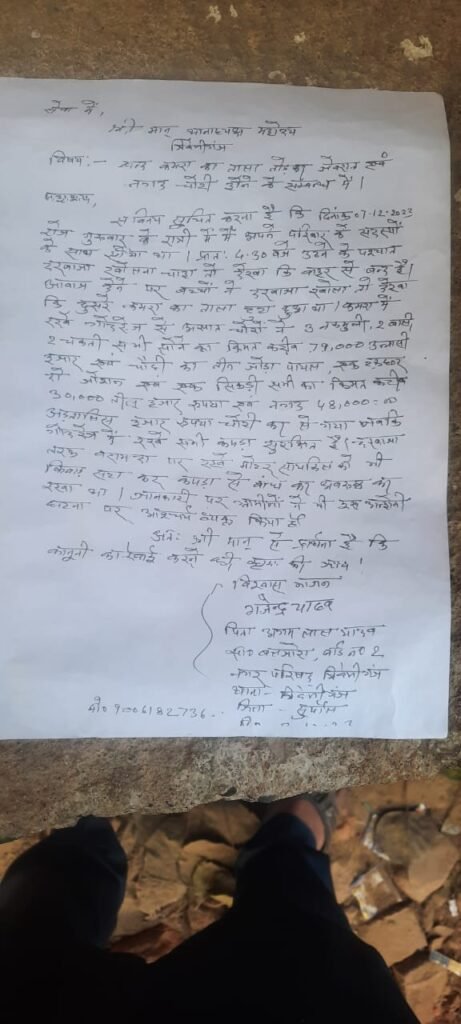 सेवा में,
श्री मान् थानाध्यक्ष महोदय
त्रिवेणीगंज
विषय:- बन्द कमरा का ताला तोड़कर जेवरात एवं
नगद चोरी होने के सम्बन्ध में।
महाशय,
सविनय सूचित करना है कि दिनांक 07-12-2023
रोज गुरुवार के रात्री में मैं अपने परिवार के सदस्यों
के साथ सोया था। प्रात: 4.30 बजे उठने के पश्चात
दरवाजा खोलना चाहा तो देखा कि बाहर से बन्द है।
आवाज देने पर बच्चों ने दरवाजा खोला तो देखा
कि दुसरे कमरा का ताला टुटा हुआ था। कमरा में
रखे गोदरेज से अज्ञात चोरों ने 3 नकमुन्नी, 2 बाली,
2 सभी सोने का किमत करीब 79,000 उन्नासी
हजार एवं चाँदी का तीन जोड़ा पायल, एक
एवं एक सिकड़ी सभी का किमत करीब
30,000 तीस हजार रूपया एवं नगद 48,000=00
अड़तालिस हजार रूपया चोरी कर ले गया जबकि
गोदरेज में रखे सभी कपड़ा सुरक्षित है। दरवाजा
तरफ बरामदा पर रखे मोटर सायकिल को भी
किवाड़ सटा कर कपड़ा से बांध कर
रखा था। जानकारी पर ग्रामीणों ने भी इस
घटना पर आश्चर्य व्यक्त किया है।
अत: श्री मान् से प्रार्थना है कि
कानूनी कारवाई करने की कृपा की जाय।
विश्वास भाजन
गजेन्द्र यादव
पिता लाल यादव
सा० वार्ड नं० 2
नगर परिषद त्रिवेणीगंज
थाना- त्रिवेणीगंज
जिला- सुपौल
मो० 9006182736.